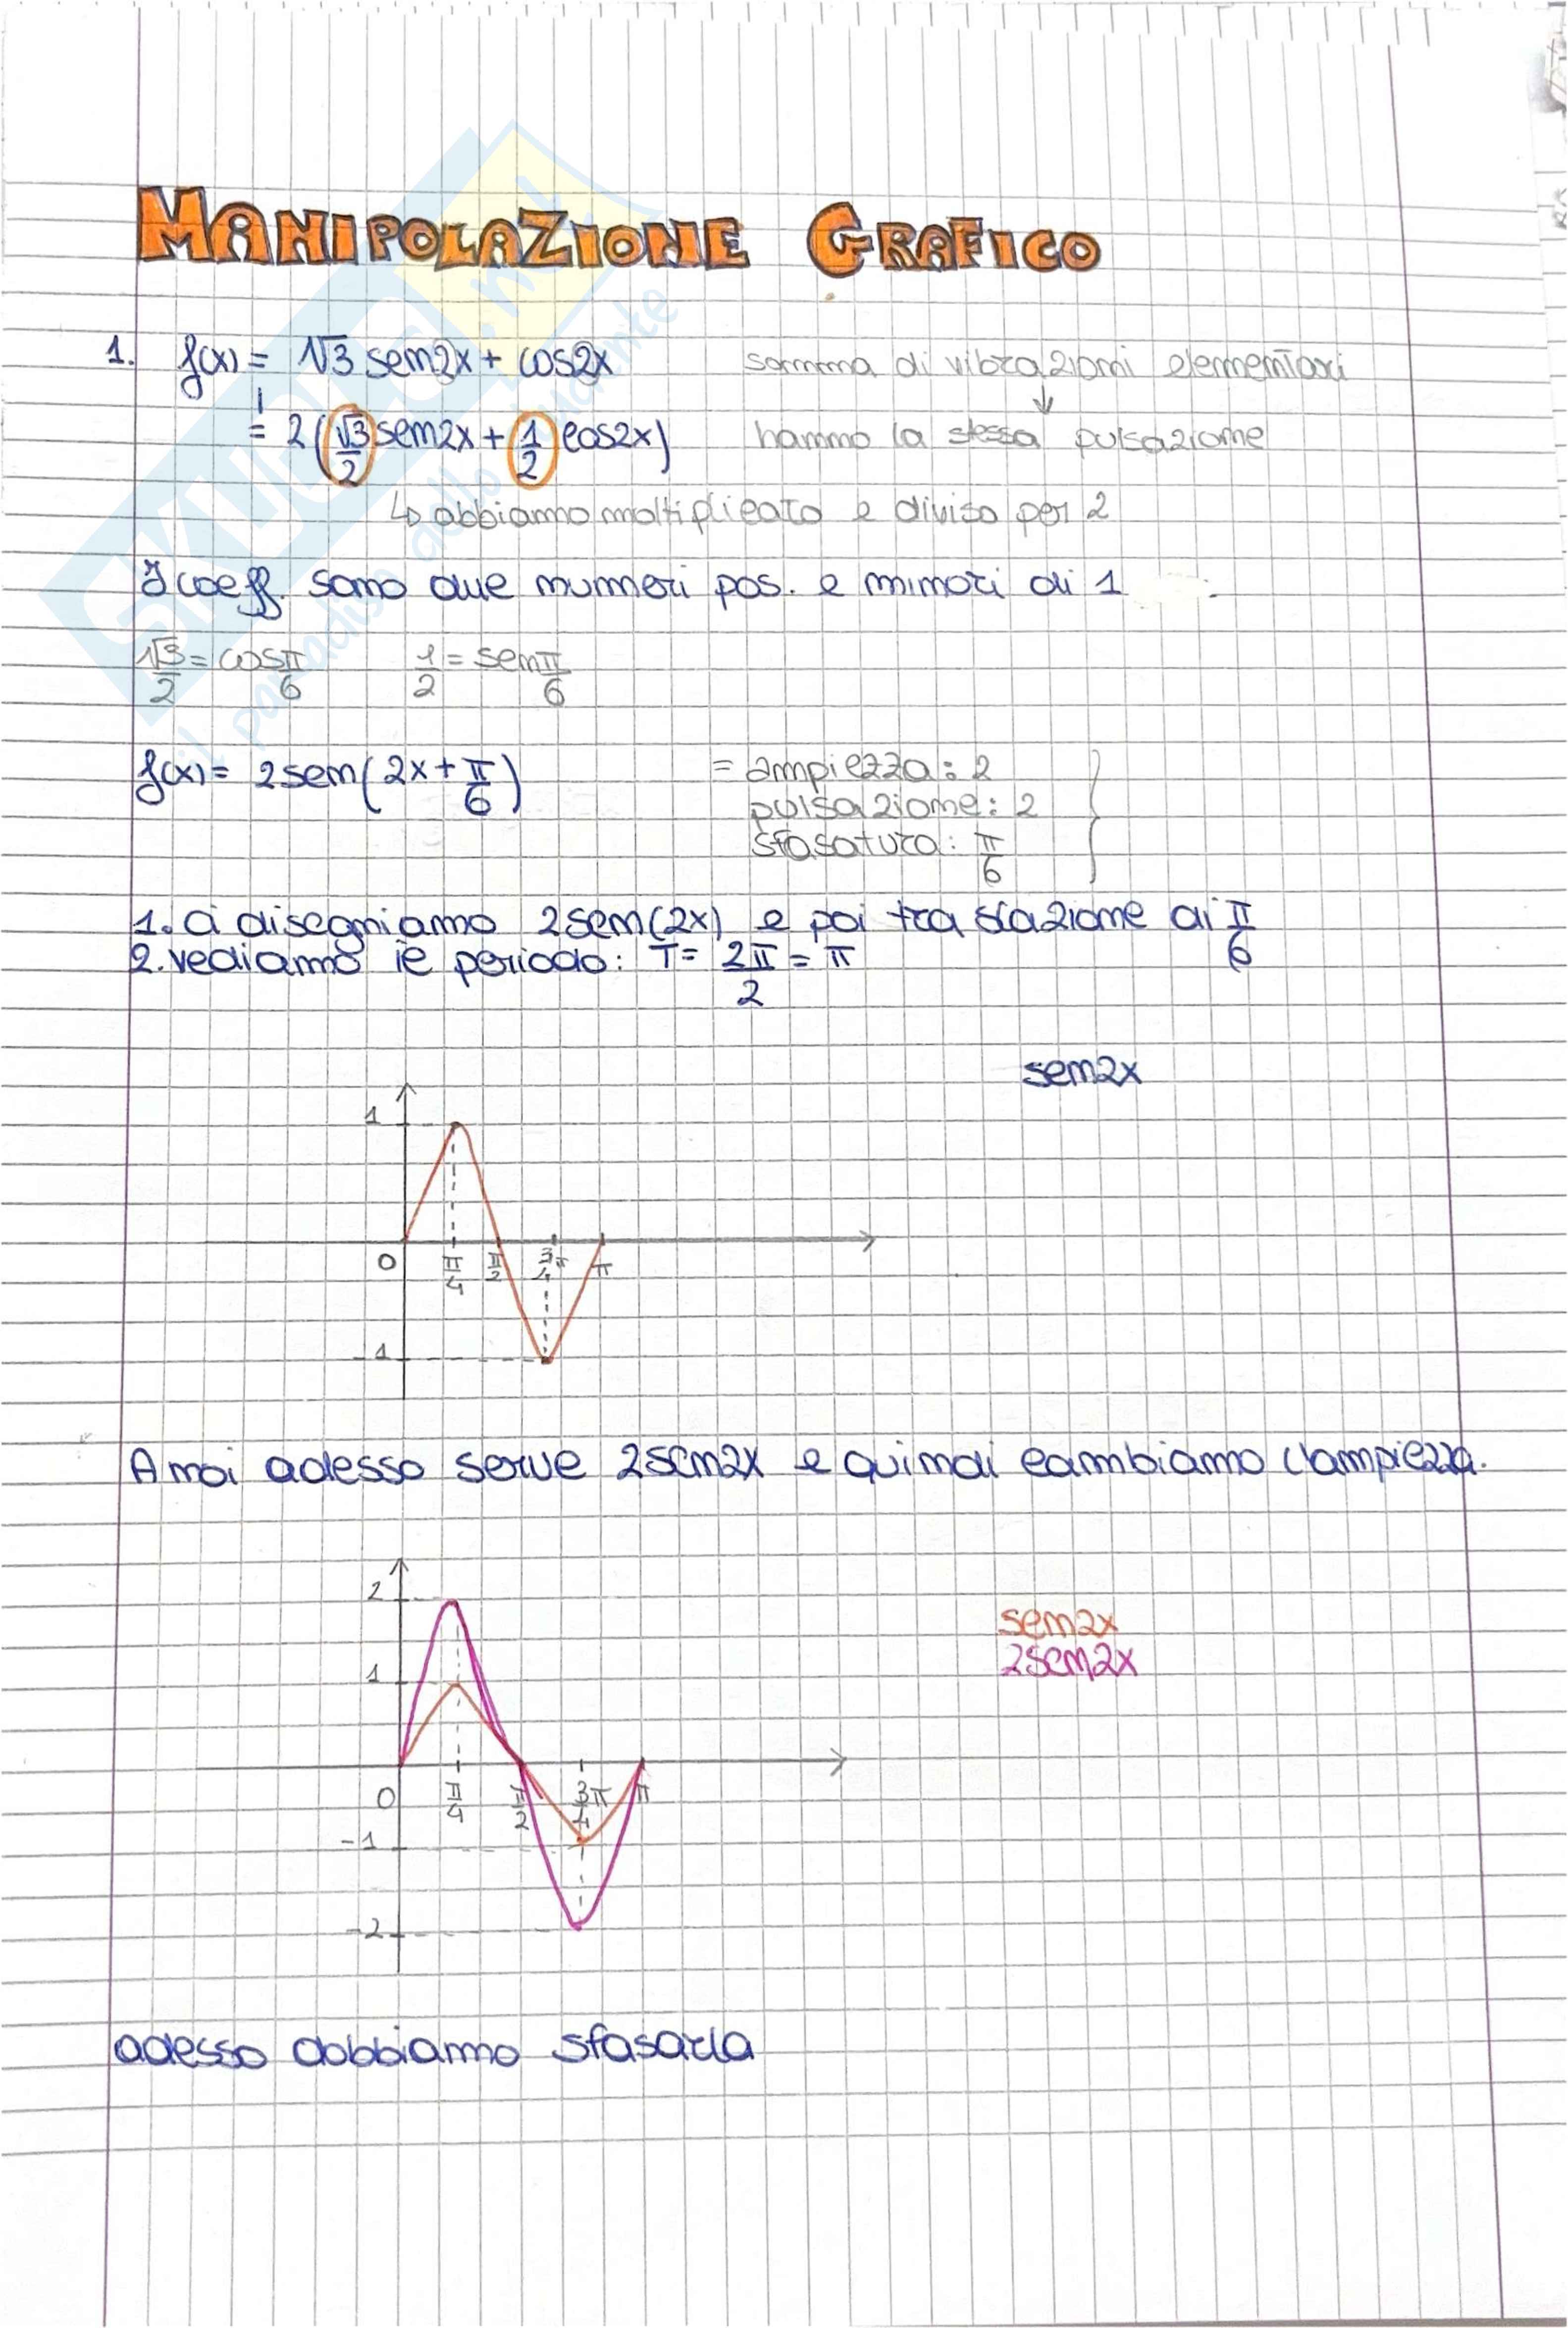 MANIPOLAZIONE GRAFICO
1. f(x) = √3 sen2x + cos2x somma di vibrazioni elementari
↓
= 2(√3/2 sen2x + 1/2 cos2x) hanno la stessa pulsazione
↳ abbiamo moltiplicato e diviso per 2
I coeff. sono due numeri pos. e minori di 1
√3/2 = cos π/6 1/2 = sen π/6
f(x) = 2sen(2x + π/6) = ampiezza: 2
pulsazione: 2
sfasatura: π/6
1. Ci disegniamo 2sen(2x) e poi traslazione di π/6
2. vediamo il periodo: T = 2π/2 = π
sen2x
1
0 π/4 π/2 3/4π π
-1
A noi adesso serve 2sen2x e quindi cambiamo l'ampiezza.
2
sen2x
2sen2x
1
0 π/4 π/2 3/4π π
-1
-2
adesso dobbiamo sfasarla
SKUOLA.net
il paradiso dello studente